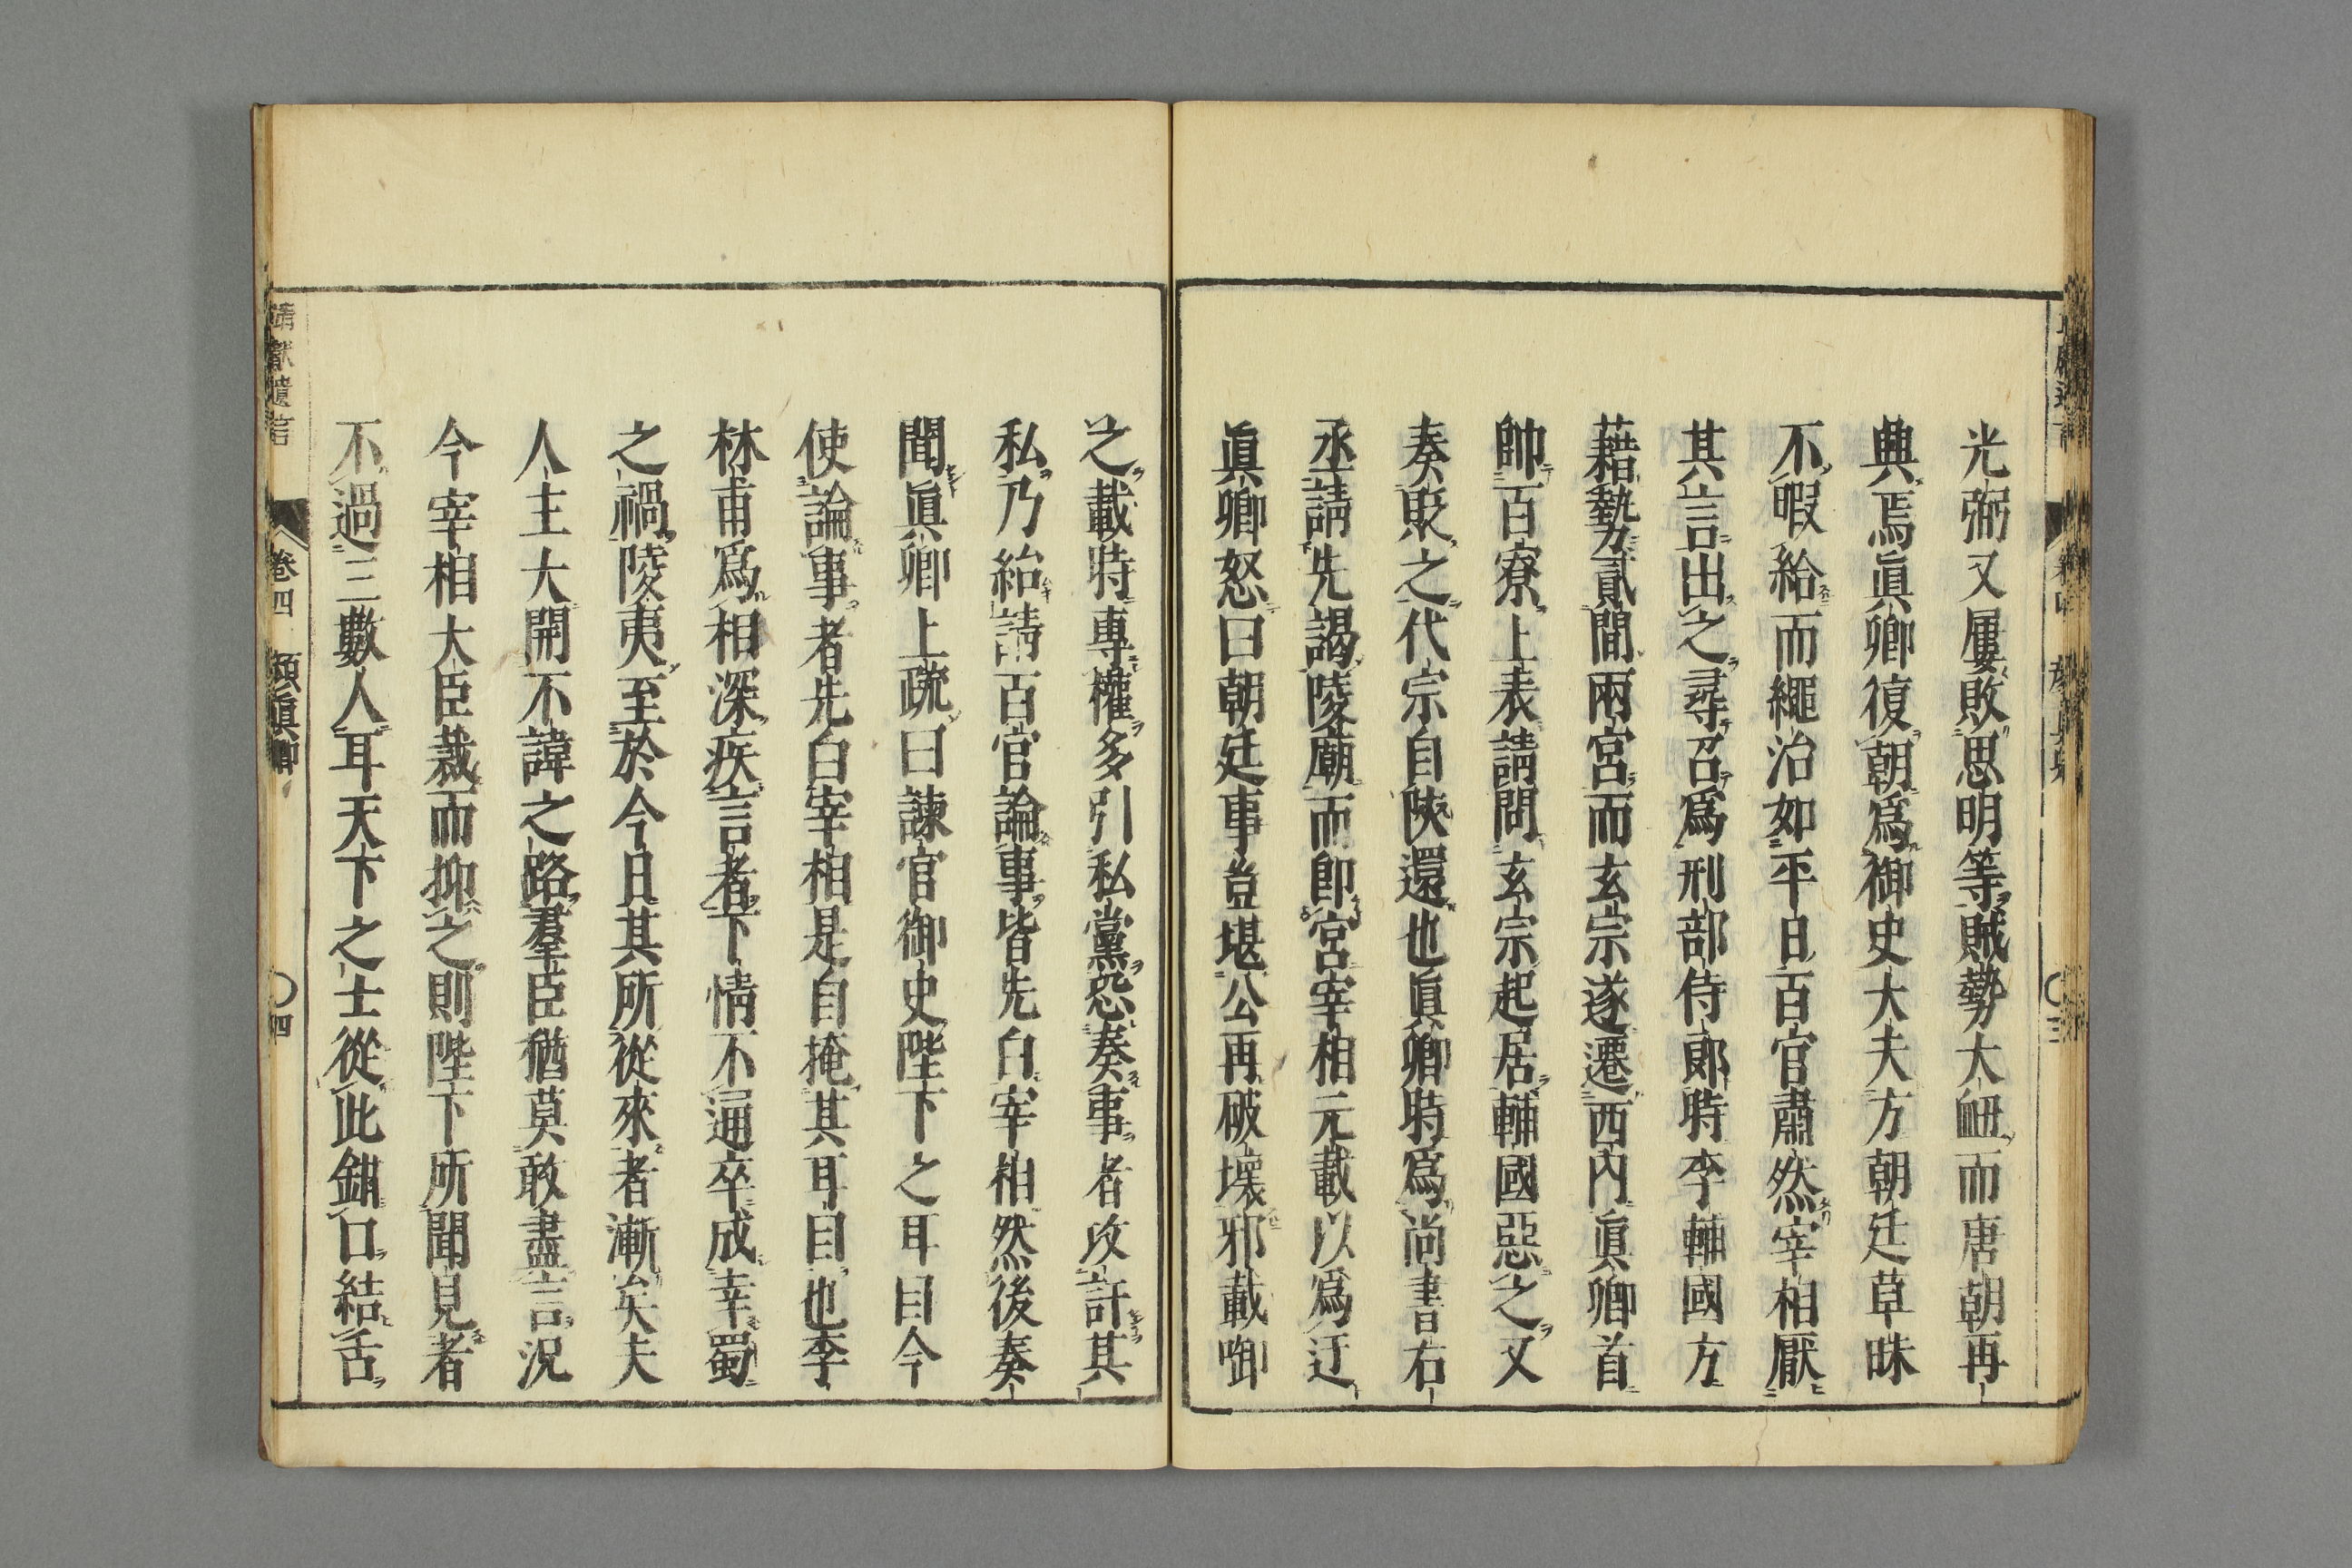 光弼又屢敗思明等賊勢大衄而唐朝再
典焉眞卿復朝爲御史大夫方朝廷草昧
不暇給而繩治如平日百官肅然宰相厭
其言出之尋召爲刑部侍郎時李輔國方
藉勢貳間兩宮而玄宗遂遷西內眞卿首
帥百寮上表請問玄宗起居輔國惡之又
奏貶之代宗自陝還也眞卿時爲尚書右
丞請先謁陵廟而卽宮宰相元載以爲迂
眞卿怒曰朝廷事豈堪公再破壞邪載啣
之載時專權多引私黨恐奏事者攻訐其
私乃紿請百官論事皆先白宰相然後奏
聞眞卿上疏曰諫官御史陛下之耳目今
使論事者先白宰相是自掩其耳目也李
林甫爲相深疾言者下情不通卒成幸蜀
之禍陵夷至於今日其所從來者漸矣夫
人主大開不諱之路羣臣猶莫敢盡言況
今宰相大臣裁而抑之則陛下所聞見者
不過三數人耳天下之士從此鉗口結舌
靖獻遺言 卷四 顏眞卿 四